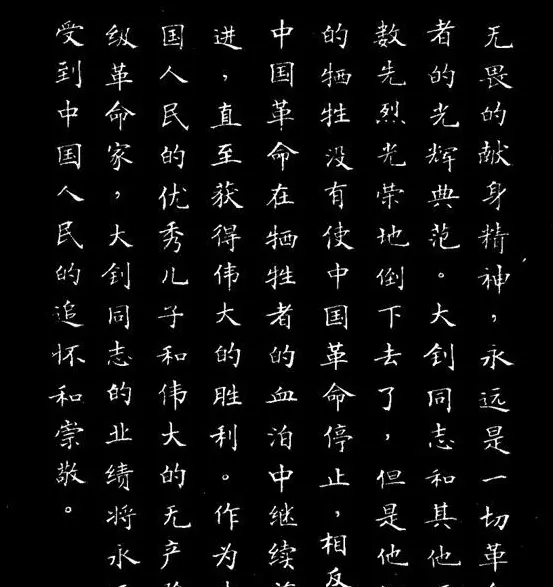 无畏的献身精神，永远是一切革
者的光辉典范。大钊同志和其他
数先烈光荣地倒下去了，但是他
的牺牲没有使中国革命停止，相反
中国革命在牺牲者的血泊中继续
进，直至获得伟大的胜利。作为
国人民的优秀儿子和伟大的无产
级革命家，大钊同志的业绩将永
受到中国人民的追怀和崇敬。